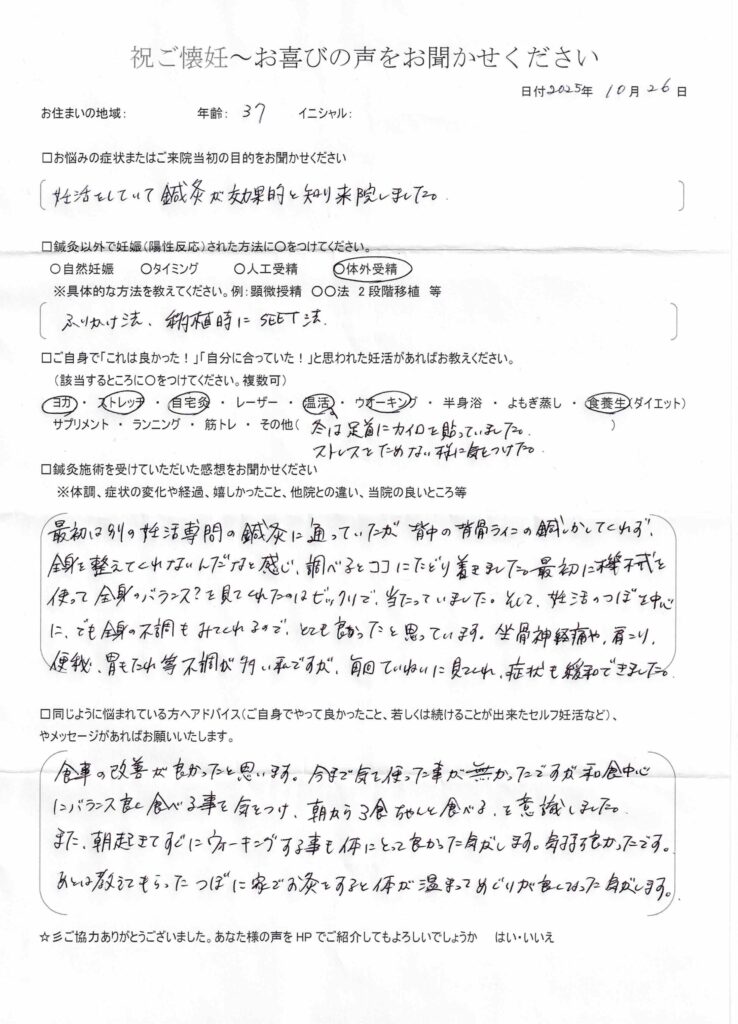 祝ご懐妊～お喜びの声をお聞かせください
日付2025年 10月 26日
お住まいの地域： 年齢： 37 イニシャル：
□お悩みの症状またはご来院当初の目的をお聞かせください
妊活をしていて鍼灸が効果的と知り来院しました。
□鍼灸以外で妊娠(陽性反応)された方法に〇をつけてください。
〇自然妊娠 〇タイミング 〇人工受精 〇体外受精
※具体的な方法を教えてください。例：顕微授精 〇〇法 2段階移植 等
ふりかけ法、移植時にSEET法.
□ご自身で「これは良かった！」「自分に合っていた！」と思われた妊活があればお教えください。
(該当するところに〇をつけてください。複数可)
ヨガ ・ ストレッチ ・ 自宅灸 ・ レーザー ・ 温活 ・ ウオーキング ・ 半身浴 ・ よもぎ蒸し ・ 食養生(ダイエット)
サプリメント ・ ランニング ・ 筋トレ ・ その他( 冬は足首にカイロを貼っていました。 )
ストレスをためない様に気をつけた。
□鍼灸施術を受けていただいた感想をお聞かせください
※体調、症状の変化や経過、嬉しかったこと、他院との違い、当院の良いところ等
最初は別の妊活専門の鍼灸に通っていたが背中の背骨ラインの鍼しかしてくれず、
全身を整えてくれないんだなと感じ、調べるとココにたどり着きました。最初に機械を
使って全身のバランス?を見てくれたのはビックリで、当たっていました。そして、妊活のつぼを中心
に、でも全身の不調もみてくれるので、とても良かったと思っています。坐骨神経痛や、肩こり、
便秘、胃もたれ等不調が多い私ですが、毎回ていねいに見てくれ、症状も緩和できました。
□同じように悩まれている方へアドバイス(ご自身でやって良かったこと、若しくは続けることが出来たセルフ妊活など)、
やメッセージがあればお願いいたします。
食事の改善が良かったと思います。今まで気を使った事が無かったですが和食中心
にバランス良く食べる事を気をつけ、朝から3食ちゃんと食べる、を意識しました。
また、朝起きてすぐにウォーキングする事も体にとって良かった気がします。気持ち良かったです。
あとは教えてもらったつぼに家でお灸をすると体が温まってめぐりが良くなった気がします。
☆彡ご協力ありがとうございました。あなた様の声をHPでご紹介してもよろしいでしょうか はい・いいえ